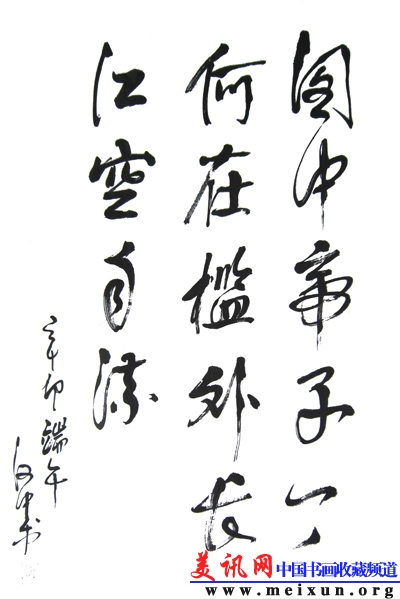 阁中帝子今
何在槛外长
江空自流
辛卯端午
美讯网 中国书画收藏频道
www.meixun.org